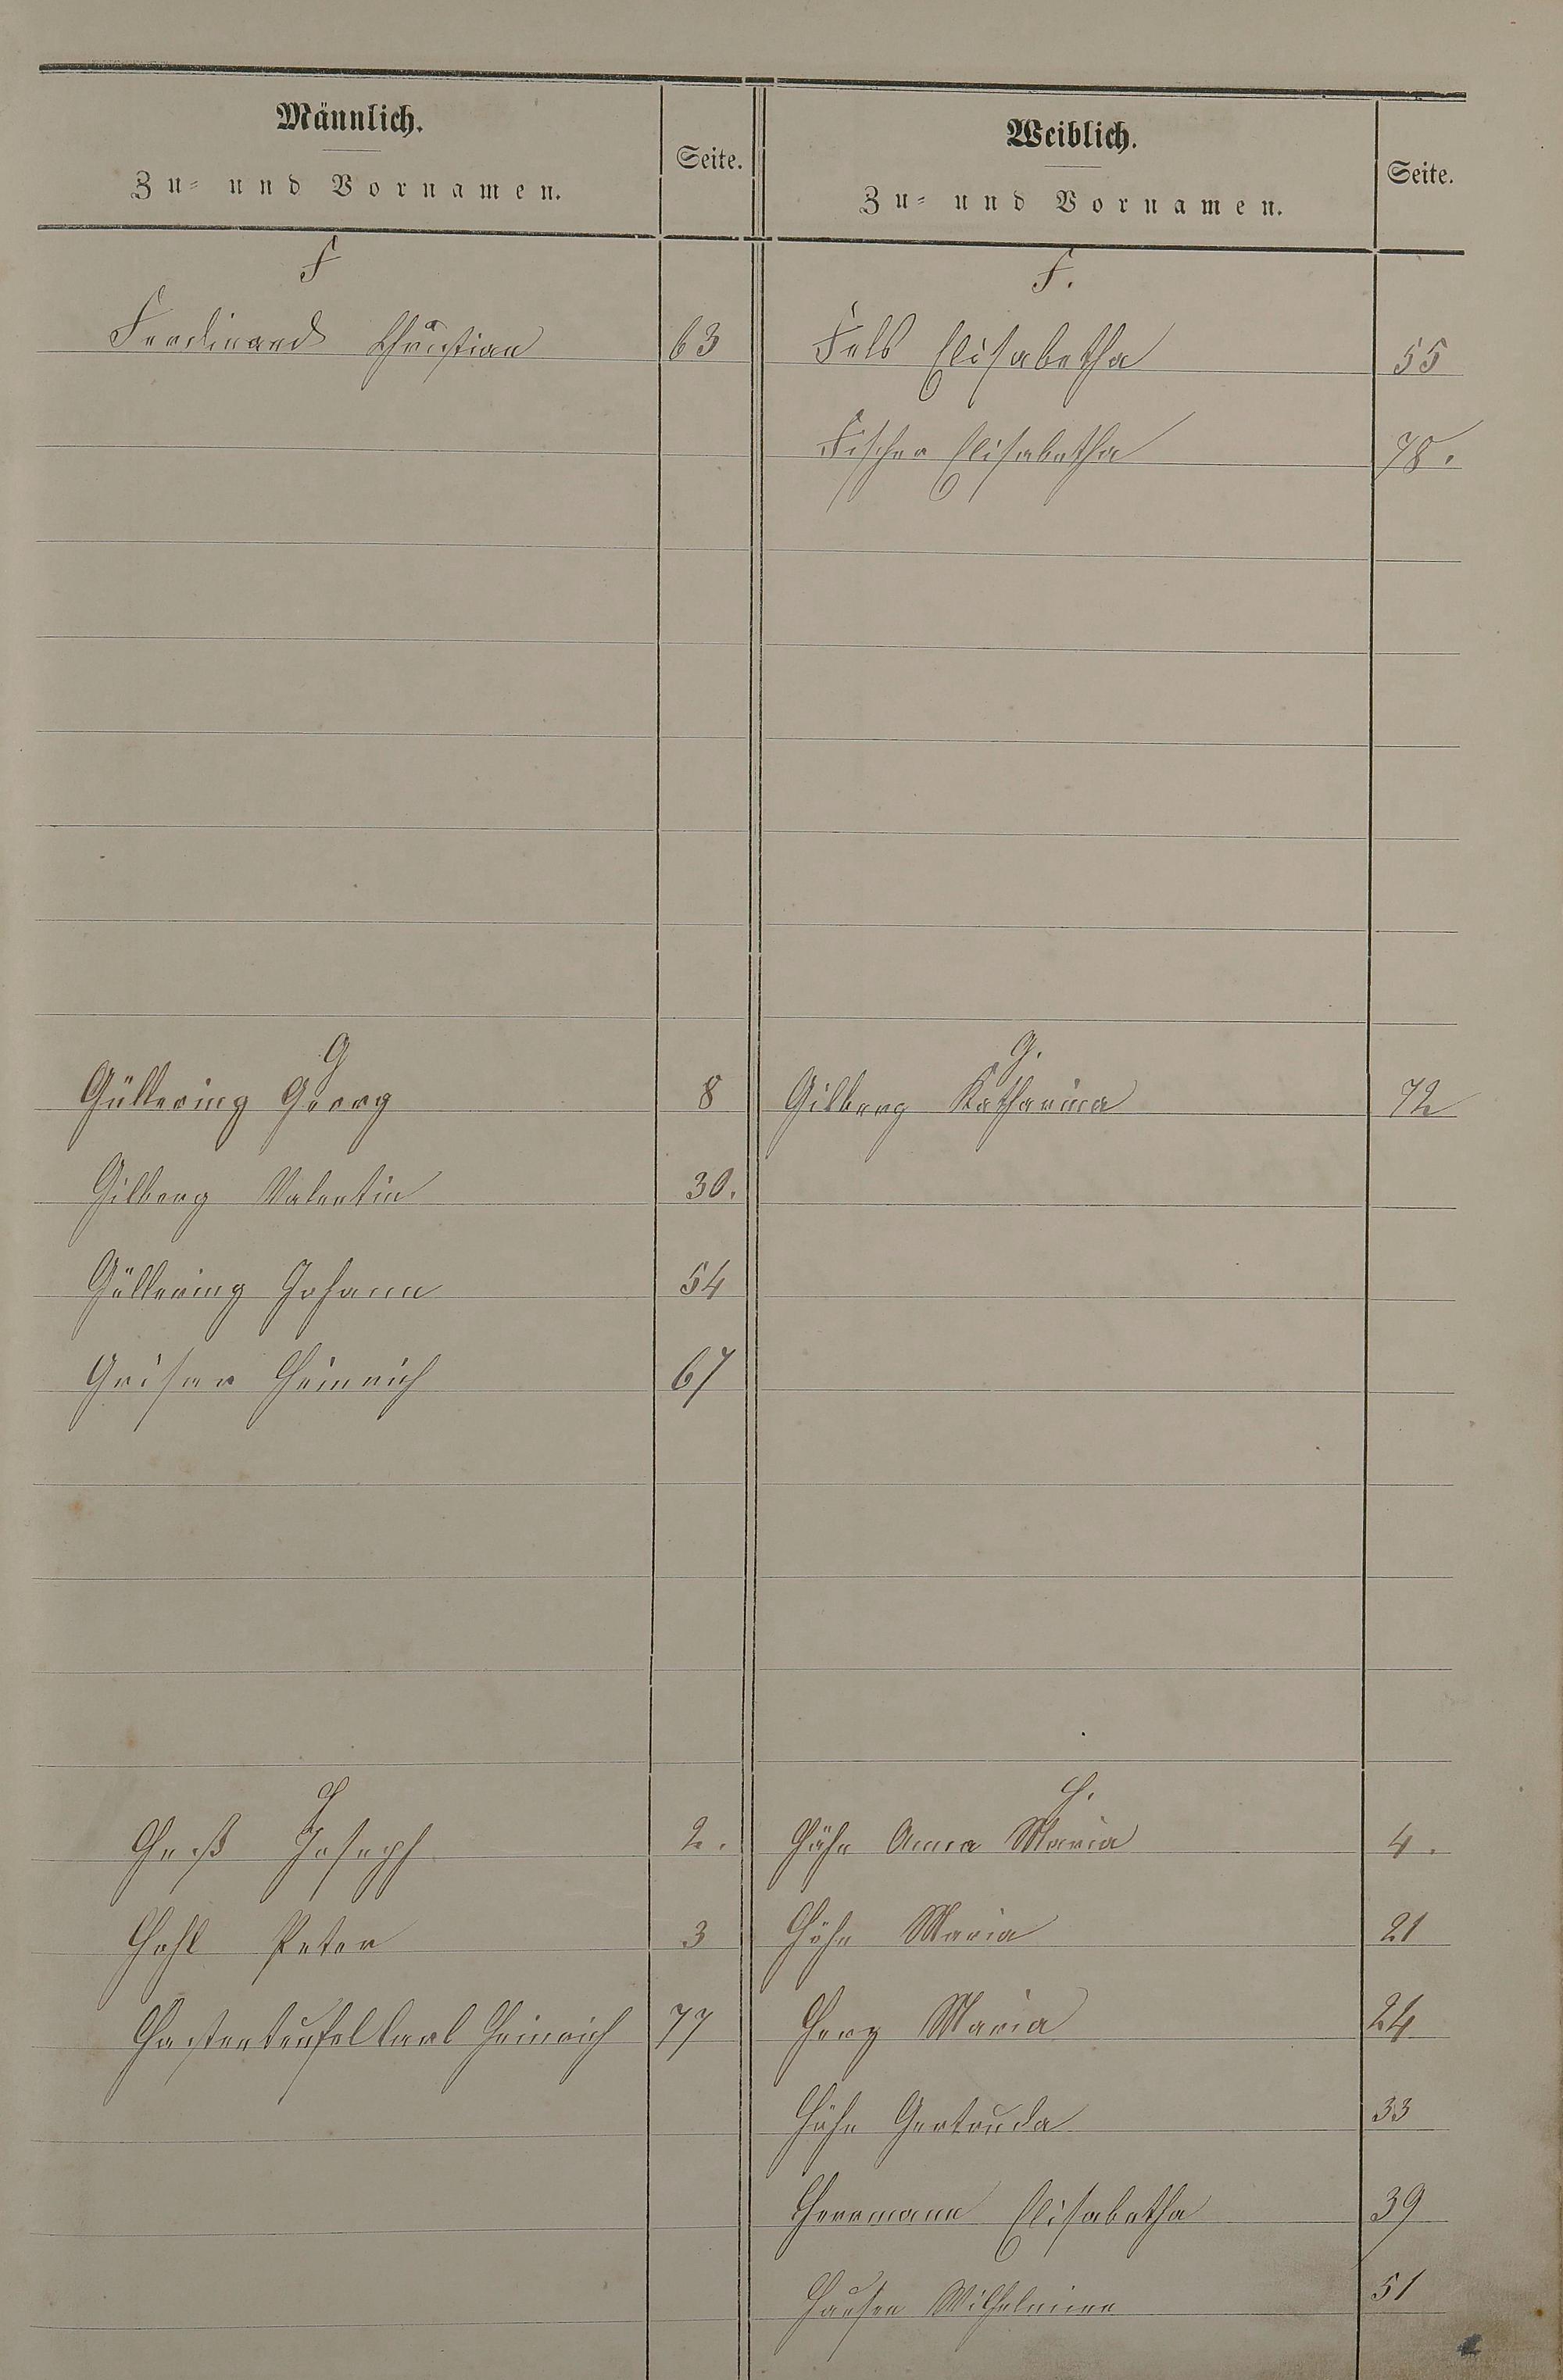 Männlich.
Zu- und Vornamen.
Seite.
F
Ferdinand Christian 63
G
Güllering Georg 8
Gilberg Valentin 30.
Güllering Johann 54
Griser Heinrich 67
H
Heß Joseph 2.
Hohl Peter 3
Hastenteufel Karl Heinrich 77
Weiblich.
Zu- und Vornamen.
Seite.
F.
Fels Elisabetha 55
Fischer Elisabetha 78.
G.
Gilberg Katharina 72
H.
Höhn Anna Maria 4.
Höhn Maria 21
Herz Maria 24
Höhn Gertruda 33
Herrmann Elisabetha 39
Hausen Wilhelmine 51